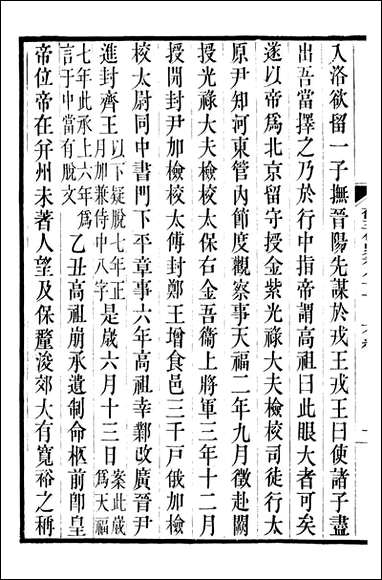 入洛欲留一子撫晉陽先謀於戎王戎王曰使諸子盡
出吾當擇之乃於行中指帝謂高祖曰此眼大者可矣
遂以帝爲北京留守授金紫光祿大夫檢校司徒行太
原尹知河東管內節度觀察事天福二年九月徵赴闕
授光祿大夫檢校太保右金吾衞上將軍三年十二月
授開封尹加檢校太傅封鄭王增食邑三千戶俄加檢
校太尉同中書門下平章事六年高祖幸鄴改廣晉尹
進封齊王以下疑脫七年正月加兼侍中八字是歲六月十三日案此歲爲天福
七年此承上六年爲言于中當有脫文乙丑高祖崩承遺制命柩前即皇
帝位帝在幷州未著人望及保釐浚郊大有寬裕之稱